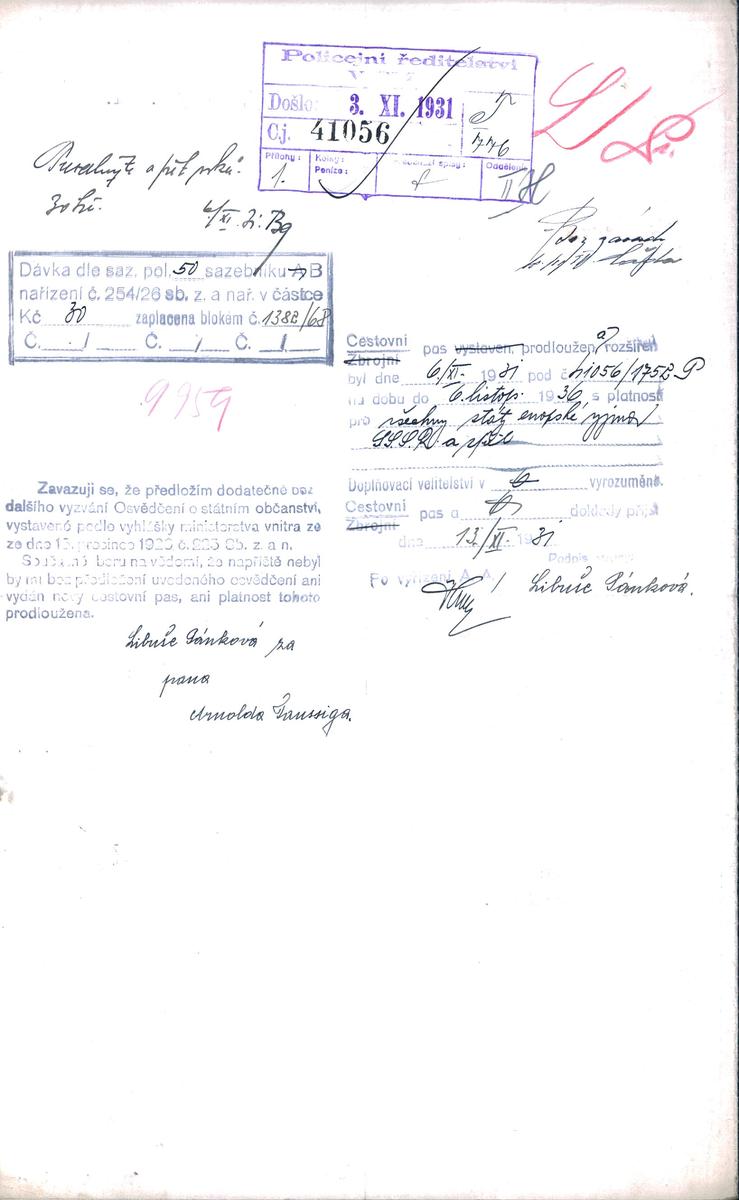 Policejní ředitelství
Došlo: 3. XI. 1931
Č.j. 41056
T
776
Přílohy: Kolky: Oddělení
1. Peníze: II
a pět roků.
30 Kč. 6/XI. 31. Bg
bez závad
Dávka dle saz. pol. 50 sazebníku A B
nařízení č. 254/26 sb. z. a nař. v částce
Kč 30 zaplacena blokem č. 1382/68
Č. / Č. / Č. /
9959
Cestovní
Zbrojní pas vystaven, prodloužen a rozšířen
byl dne 6./XI. 1931 pod č. 41056/1752 P
na dobu do 6. listop. 1936, s platností
pro všechny státy evropské vyjma
S.S.S.R. a zpět
Doplňovací velitelství v vyrozuměno.
Cestovní
Zbrojní pas a doklady přijal
dne 13./XI. 1931
Podpis
Po vyřízení A. A. / Libuše Pánková.
Zavazuji se, že předložím dodatečně bez
dalšího vyzvání Osvědčení o státním občanství,
vystavené podle vyhlášky ministerstva vnitra ze
ze dne 13. prosince 1923, č. 225 Sb. z. a n.
Současně beru na vědomí, že napříště nebyl
by mi bez předložení uvedeného osvědčení ani
vydán nový cestovní pas, ani platnost tohoto
prodloužena.
Libuše Pánková za
pana
Arnolda Taussiga.